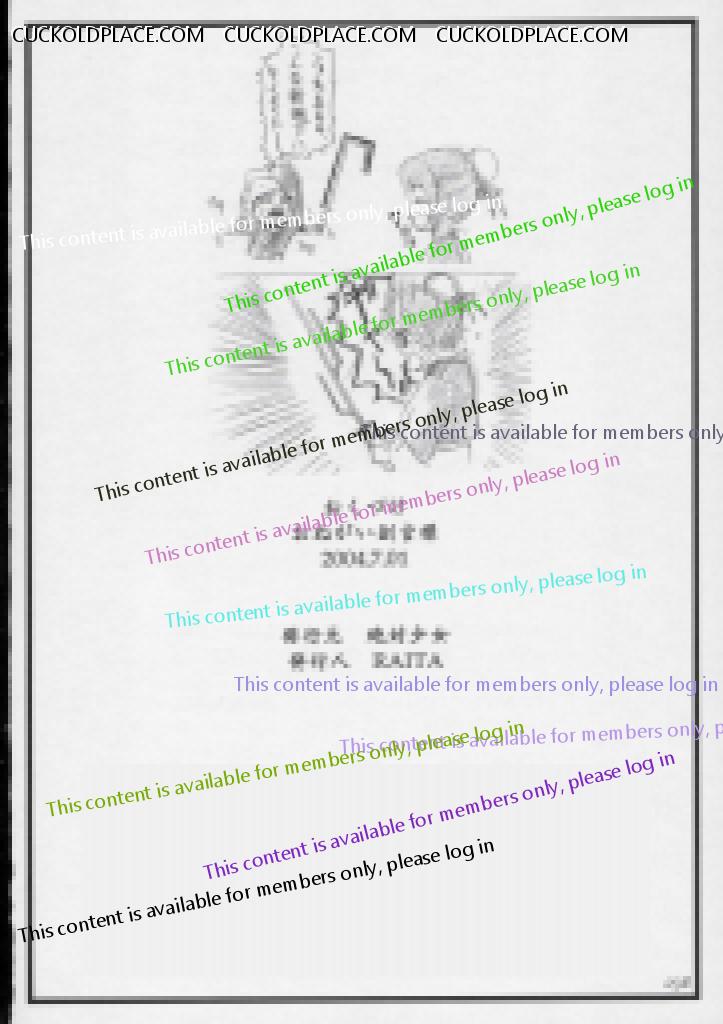 CUCKOLDPLACE.COM CUCKOLDPLACE.COM CUCKOLDPLACE.COM
This content is available for members only, please log in
This content is available for members only, please log in
This content is available for members only, please log in
This content is available for members only, please log in
This content is available for members only
This content is available for members only, please log in
2004.7.01
This content is available for members only, please log in
発行人 RAITA
This content is available for members only, please log in
This content is available for members only, p
This content is available for members only, please log in
This content is available for members only, please log in
This content is available for members only, please log in